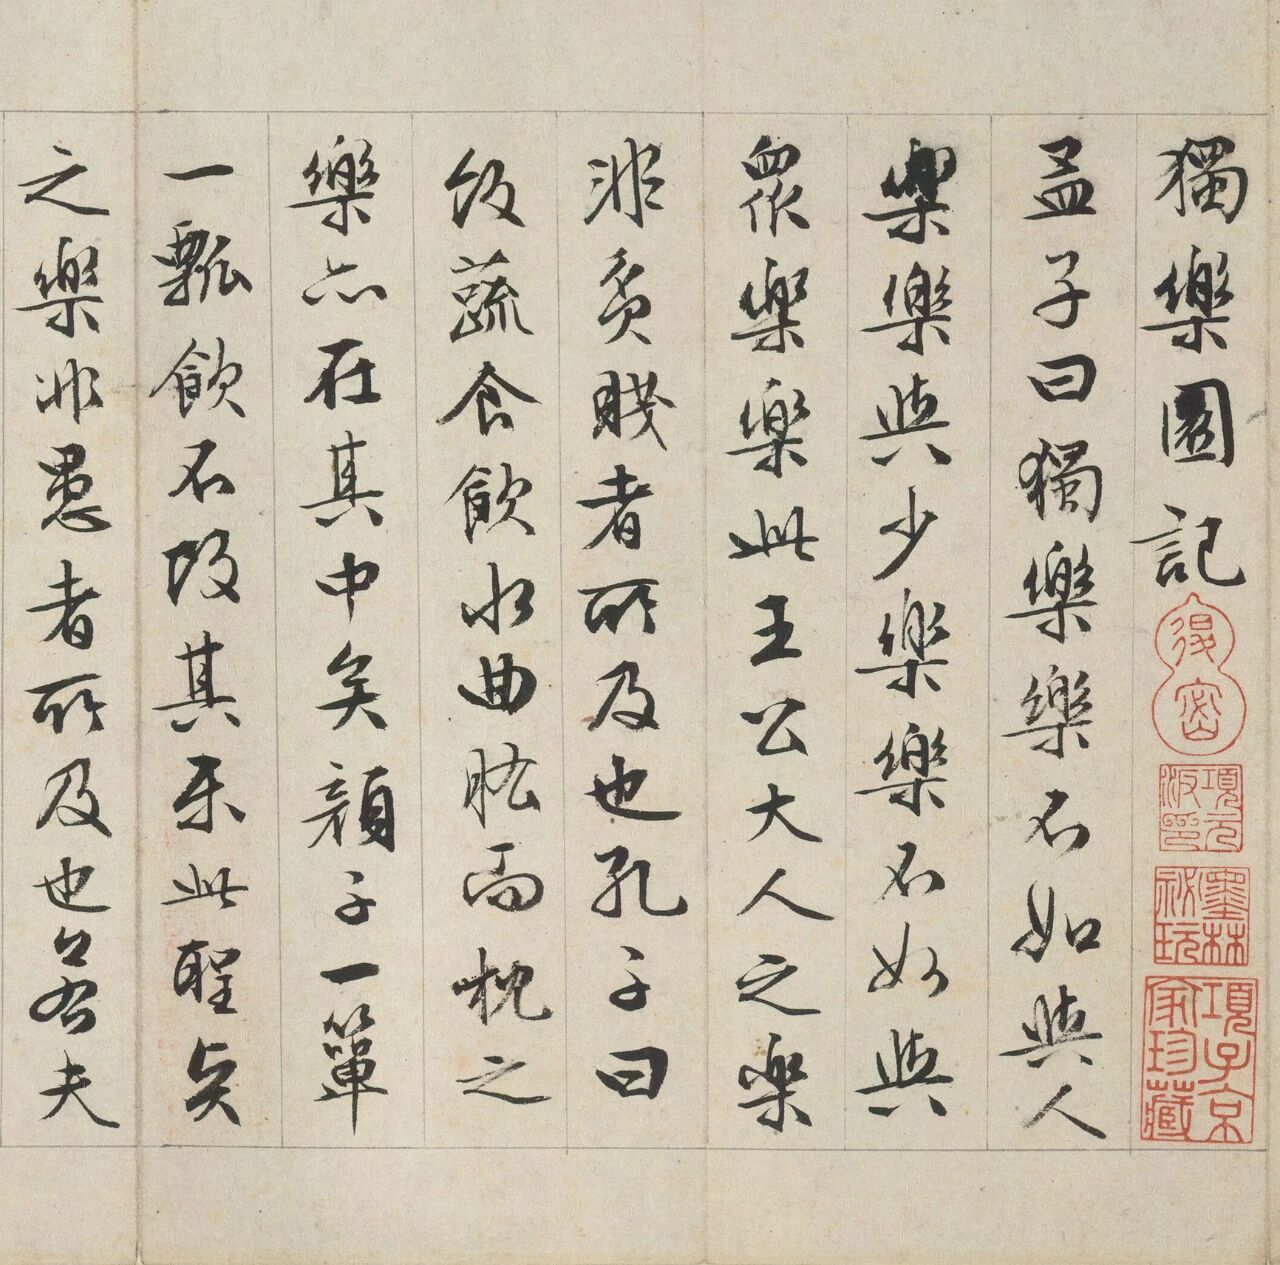 獨樂園記
退密
項元汴印
墨林秘玩
項子京家珍藏
孟子曰獨樂樂不如與人
樂樂與少樂樂不如與
眾樂樂此王公大人之樂
非貧賤者所及也孔子曰
飯蔬食飲水曲肱而枕之
樂亦在其中矣顏子一簞
一瓢飲不改其樂此聖賢
之樂非愚者所及也若夫